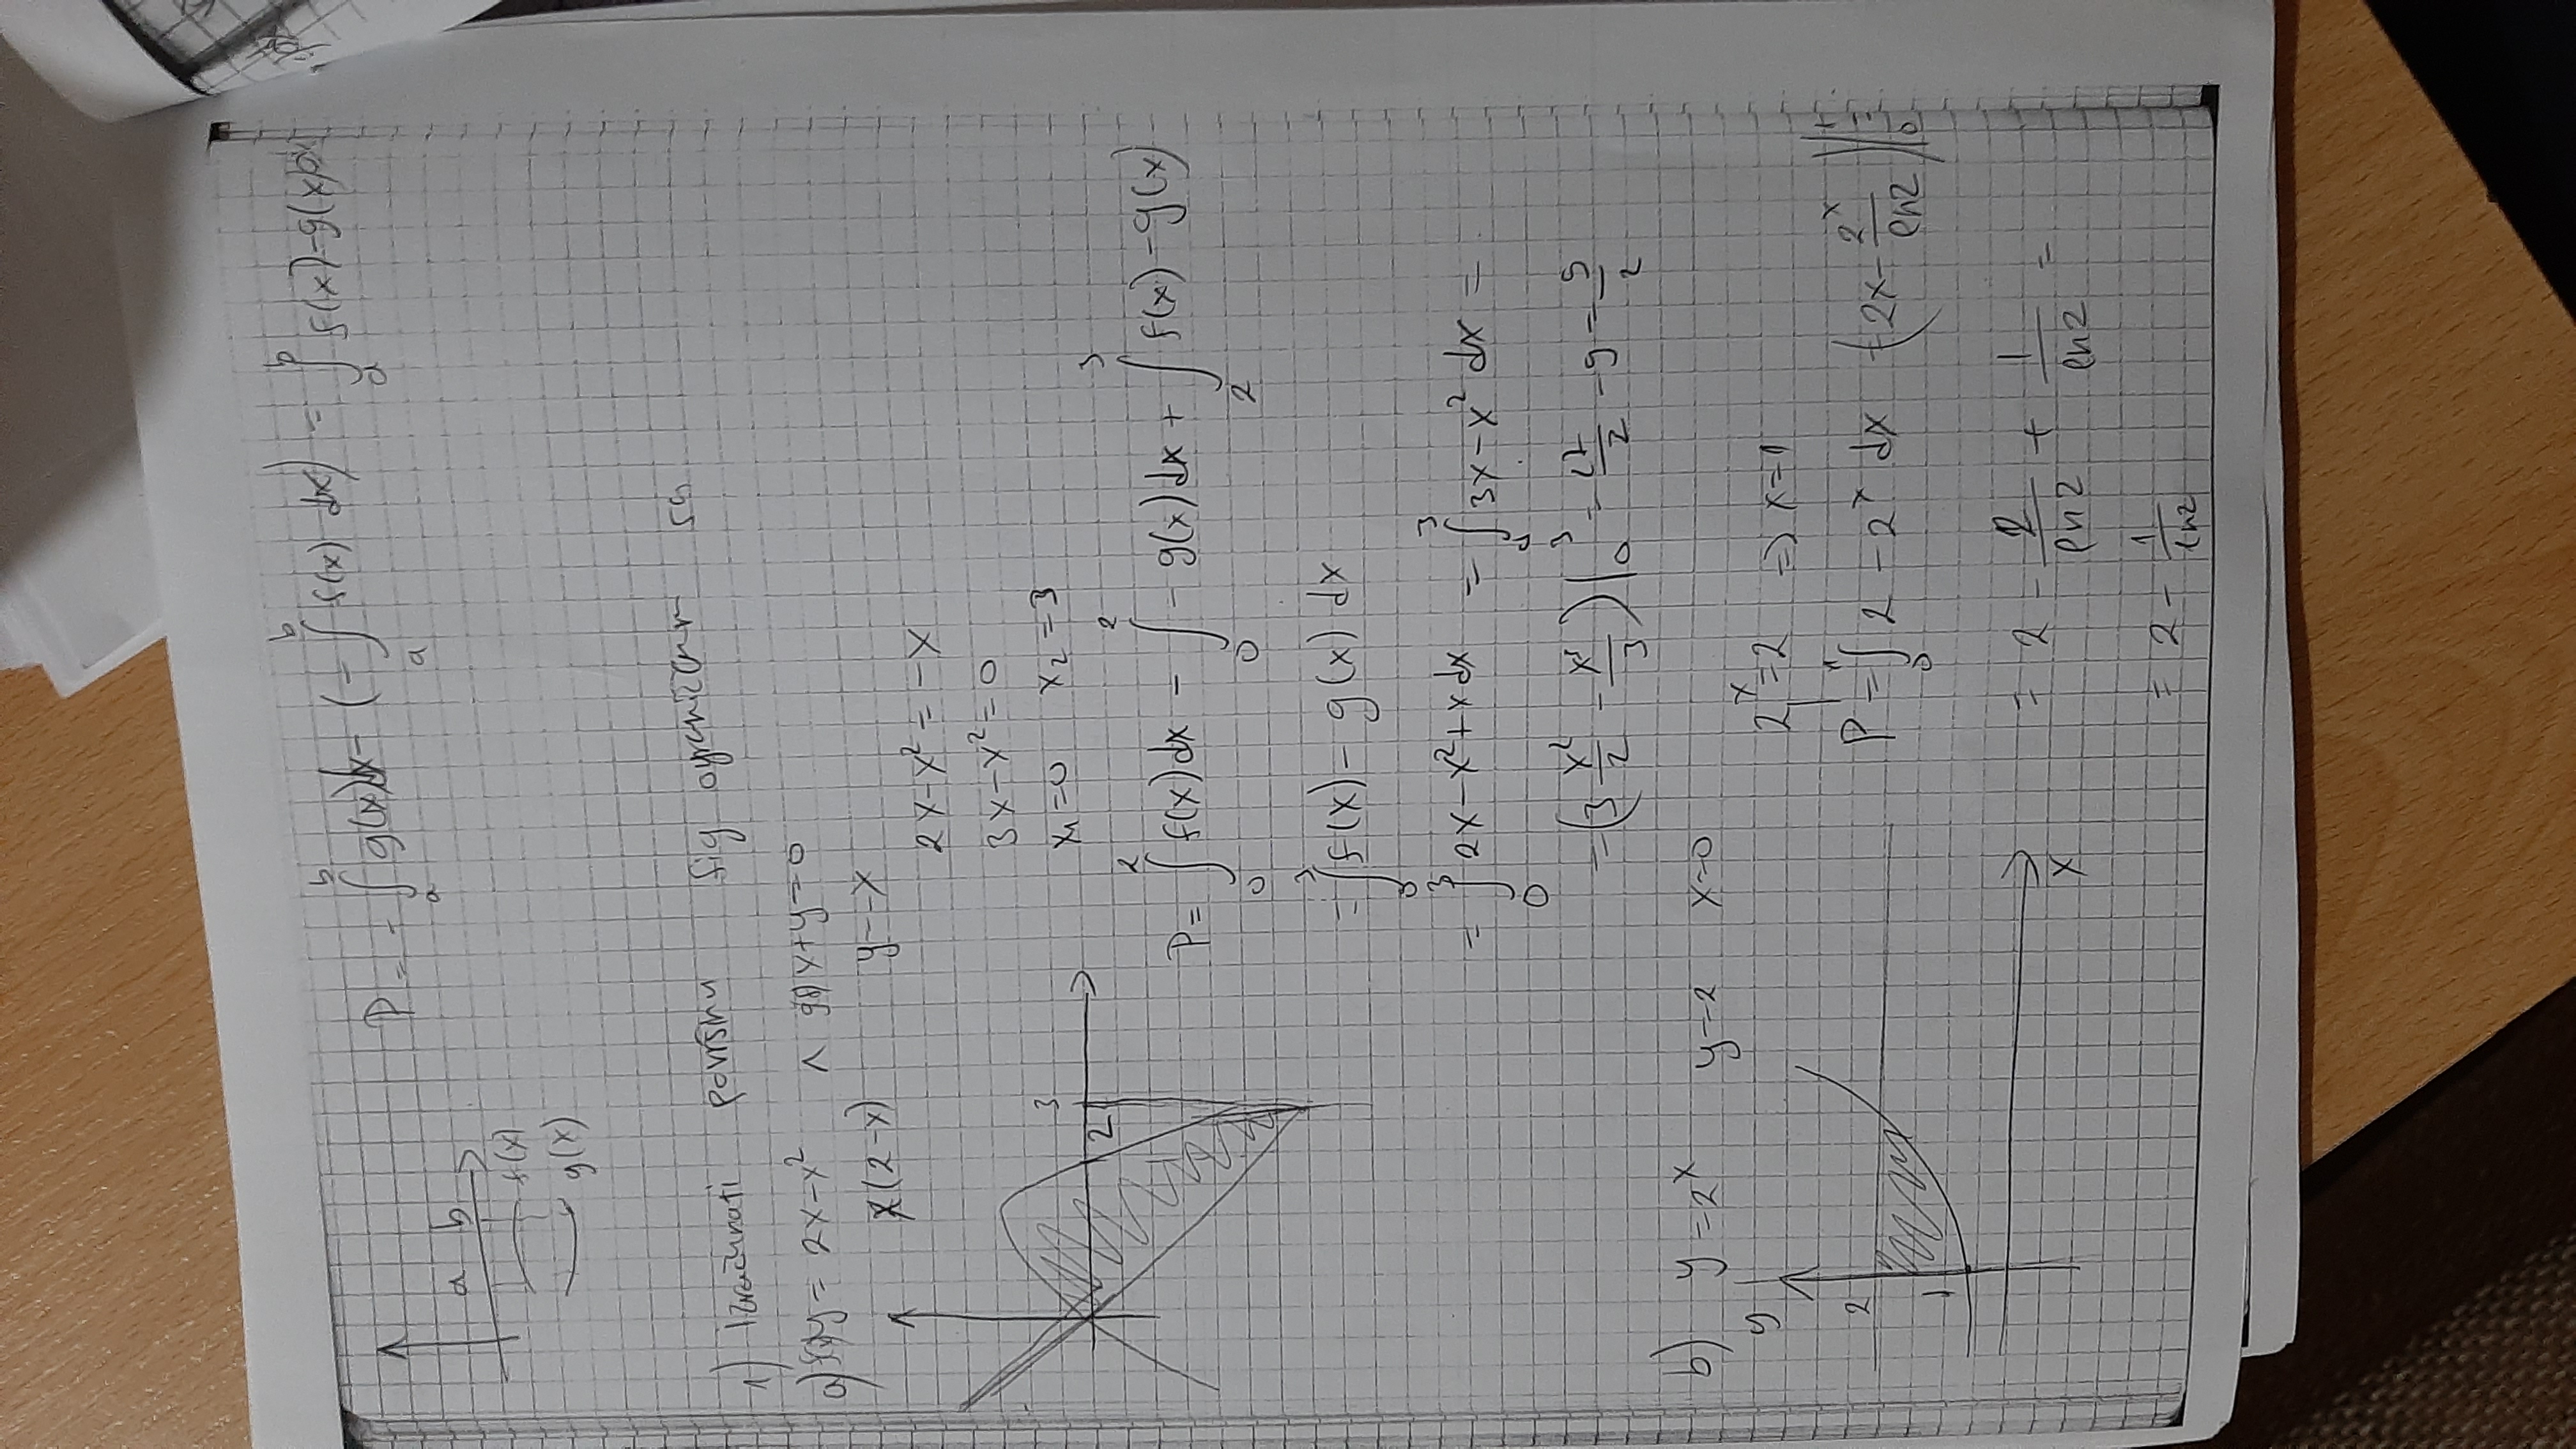 P = - ∫_a^b g(x)dx - (- ∫_a^b f(x) dx) = ∫_a^b f(x)-g(x)dx
a b
f(x)
g(x)
1) Izračunati površinu fig ograničenu sa
a) f(x) y = 2x-x² ∧ g(x) x+y=0
x(2-x) y=-x
2x-x² = -x
3x-x²=0
3
x₁=0 x₂=3
2
P= ∫_0^2 f(x)dx - ∫_0^2 - g(x)dx + ∫_2^3 f(x)-g(x)
= ∫_0^3 f(x) - g(x) dx
= ∫_0^3 2x-x²+x dx = ∫_0^3 3x-x² dx =
= (3 x²/2 - x³/3) |_0^3 = 27/2 - 9 = 9/2
b) y=2^x y=2 x=0
y
2^x=2 ⇒ x=1
2
P = ∫_0^1 2-2^x dx = (2x - 2^x/ln2)|_0^1 =
1
= 2 - 2/ln2 + 1/ln2 =
x
= 2 - 1/ln2